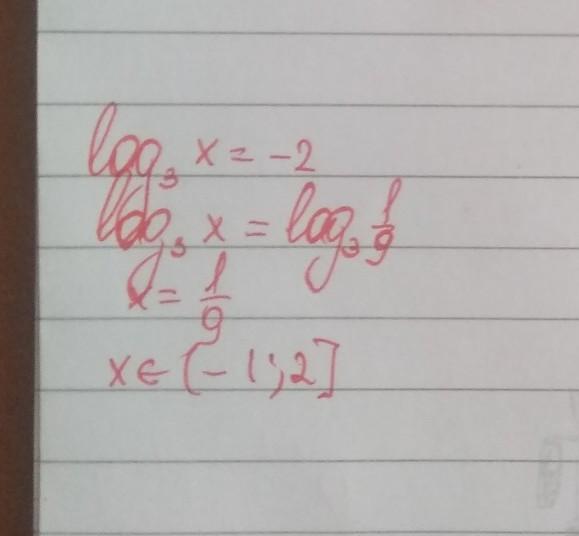 log₃ x = -2
log₃ x = log₃ 1/9
x = 1/9
x ∈ (-1; 2]